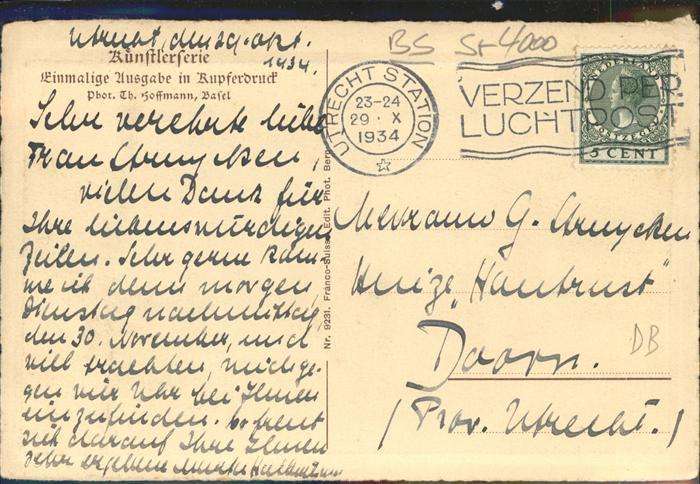 Utrecht, den 29. Okt.
1934.
Künstlerserie
Einmalige Ausgabe in Kupferdruck
Phot. Th. Hoffmann, Basel
Sehr verehrte liebe
Frau
vielen Dank für
Ihre liebenswürdigen
Zeilen. Sehr gerne kom-
me ich denn morgen,
Dienstag nachmittag,
den 30. November, und
will trachten, mich ge-
gen vier Uhr bei Ihnen
einzufinden. Es freut
sich darauf Ihre Ihnen
sehr ergebene
Nr. 9231. Franco-Suisse, Edit. Phot. Bern
BS St 4000
UTRECHT STATION
23-24
29 · X
1934
VERZEND PER
LUCHTPOST
NEDERLAND
POSTZEGEL
5 CENT
Mevrouw G.
Huize "Hautrust"
Doorn.
DB
(Prov. Utrecht.)